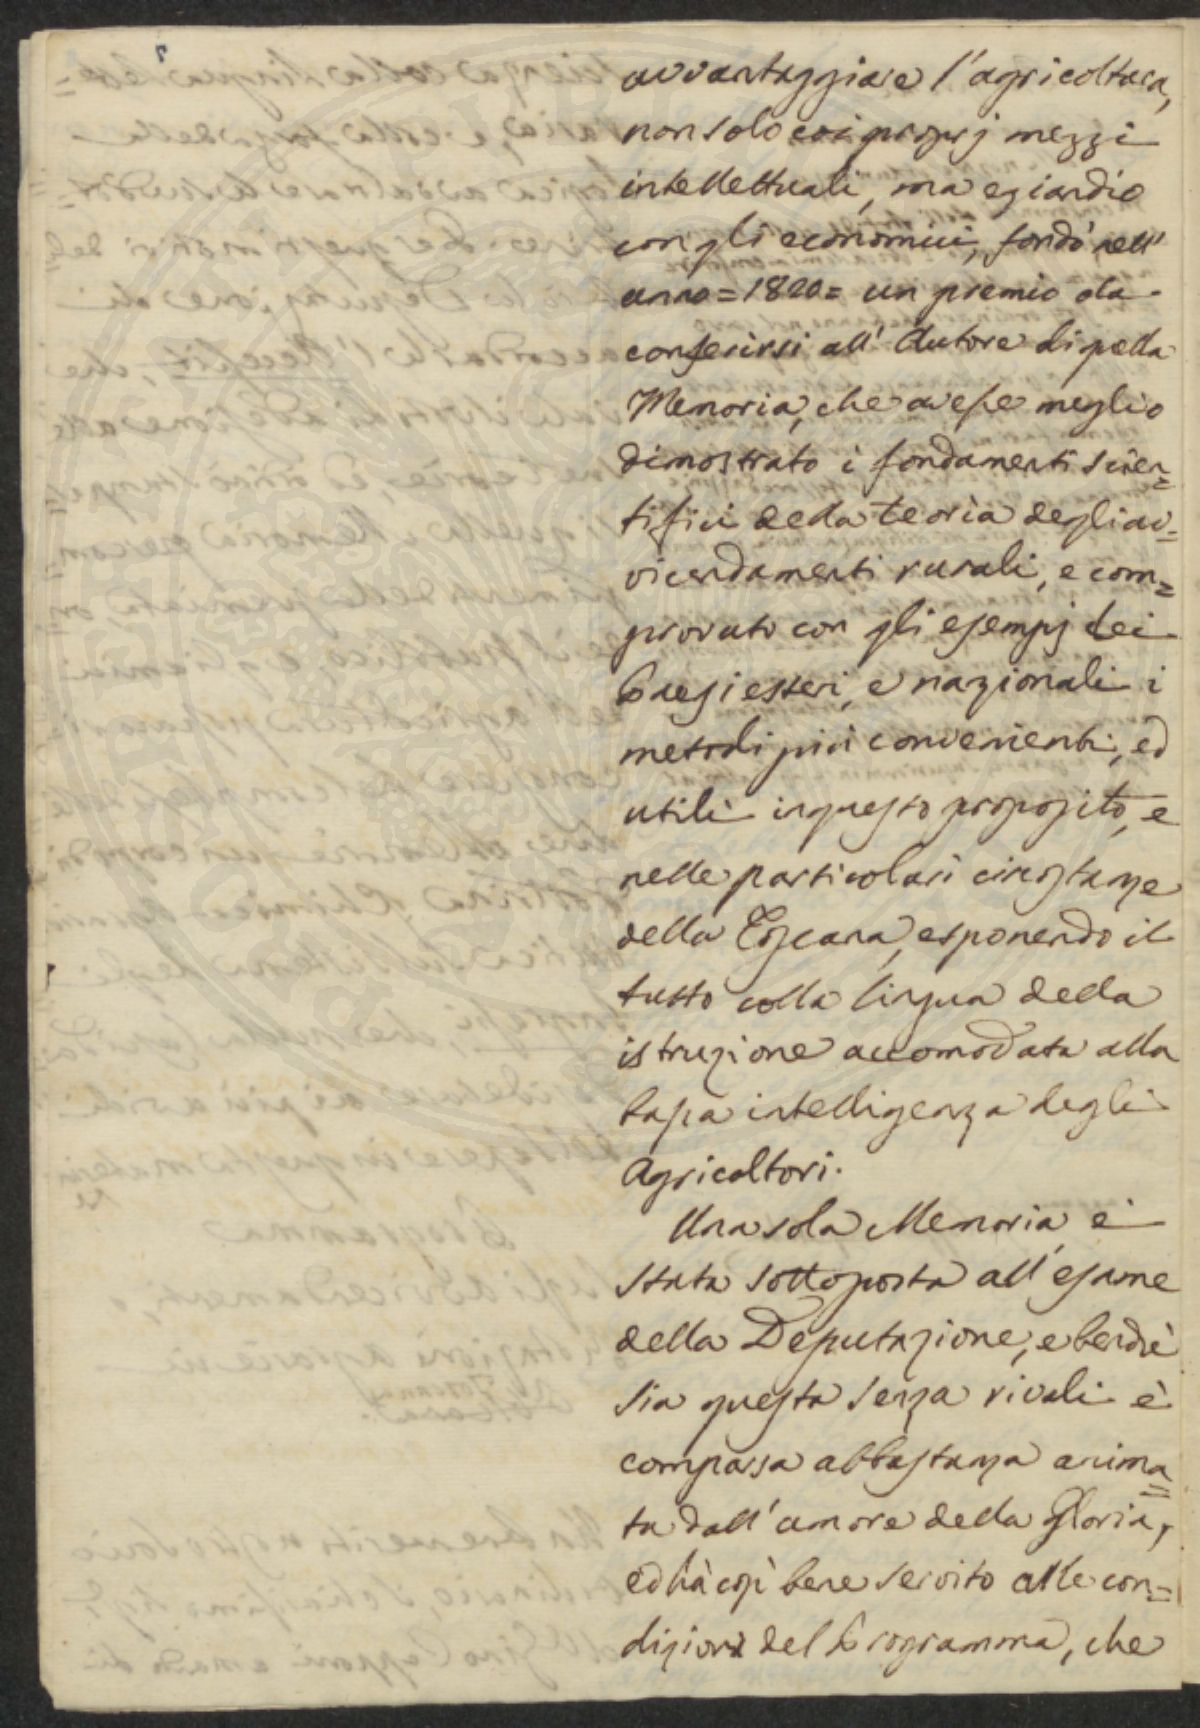 avvantaggiare l'agricoltura,
non solo coi proprj mezzi
intellettuali, ma eziandio
con gli economici, fondò nell'
anno = 1820 = un premio da
conferirsi all'Autore di quella
Memoria, che avesse meglio
dimostrato i fondamenti scien=
tifici della teoria degli av=
vicendamenti rurali, e com=
provato con gli esempj dei
Paesi esteri, e nazionali i
metodi più convenienti, ed
utili in questo proposito, e
nelle particolari circostanze
della Toscana, esponendo il
tutto colla lingua della
istruzione accomodata alla
bassa intelligenza degli
Agricoltori.
Una sola Memoria è
stata sottoposta all'esame
della Deputazione, e benchè
sia questa senza rivali è
comparsa abbastanza anima=
ta dall'amore della Gloria,
ed hà così bene servito alle con=
dizioni del Programma, che